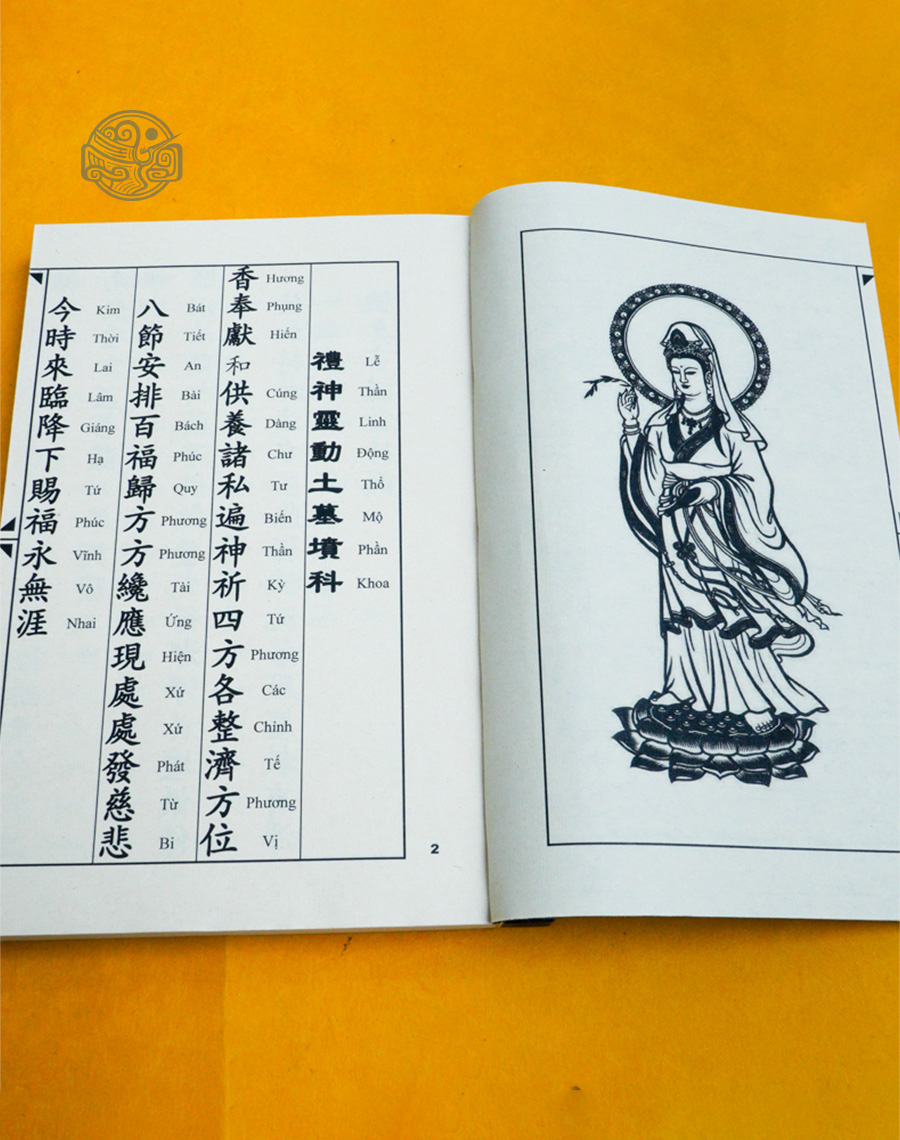 禮神靈動土墓墳科
Lễ Thần Linh Động Thổ Mộ Phần Khoa
香奉獻和供養諸私遍神祈四方各整濟方位
Hương Phụng Hiến Cúng Dàng Chư Tư Biến Thần Kỳ Tứ Phương Các Chỉnh Tế Phương Vị
八節安排百福歸方方纔應現處處發慈悲
Bát Tiết An Bài Bách Phúc Quy Phương Phương Tài Ứng Hiện Xứ Xứ Phát Từ Bi
今時來臨降下賜福永無涯
Kim Thời Lai Lâm Giáng Hạ Tứ Phúc Vĩnh Vô Nhai
2